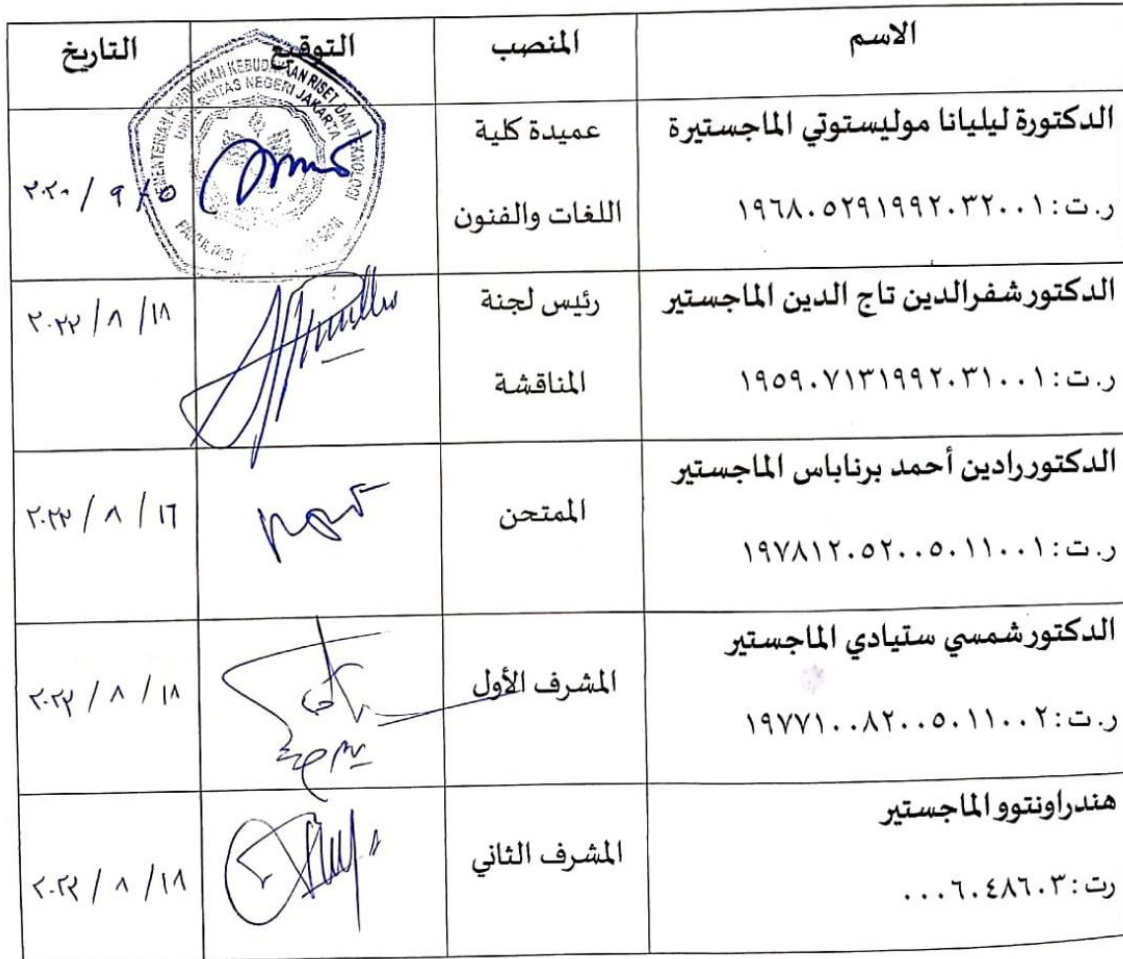 الاسم المنصب التوقيع التاريخ
الدكتورة ليليانا موليستوتي الماجستيرة
ر.ت: ١٩٦٨٠٥٢٩١٩٩٢٠٣٢٠٠١
عميدة كلية
اللغات والفنون
KEBUDAYAAN RISET DAN TEKNOLOGI
UNIVERSITAS NEGERI JAKARTA
الدكتور شفرالدين تاج الدين الماجستير
ر.ت: ١٩٥٩٠٧١٣١٩٩٢٠٣١٠٠١
رئيس لجنة
المناقشة
١٨ / ٨ / ٢٠٢٢
الدكتور رادين أحمد برناباس الماجستير
ر.ت: ١٩٧٨١٢٠٥٢٠٠٥٠١١٠٠١
الممتحن
١٦ / ٨ / ٢٠٢٢
الدكتور شمسي ستيادي الماجستير
ر.ت: ١٩٧٧١٠٠٨٢٠٠٥٠١١٠٠٢
المشرف الأول
١٨ / ٨ / ٢٠٢٢
هندراونتوو الماجستير
رت: ٠٠٠٦٠٤٨٦٠٣
المشرف الثاني
١٨ / ٨ / ٢٠٢٢